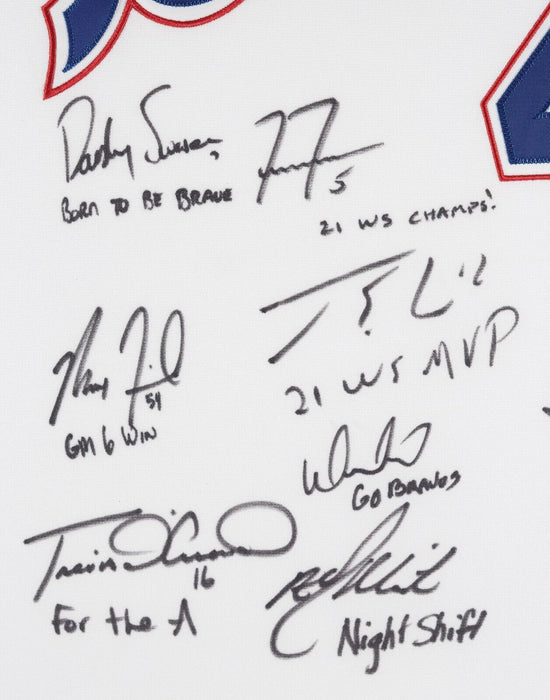 Dansby Swanson
BORN TO BE BRAVE
5
21 WS CHAMPS!
21 WS MVP
Max Fried
54
GM 6 WIN
GO BRAVES
Travis d'Arnaud
16
For the A
Night Shift